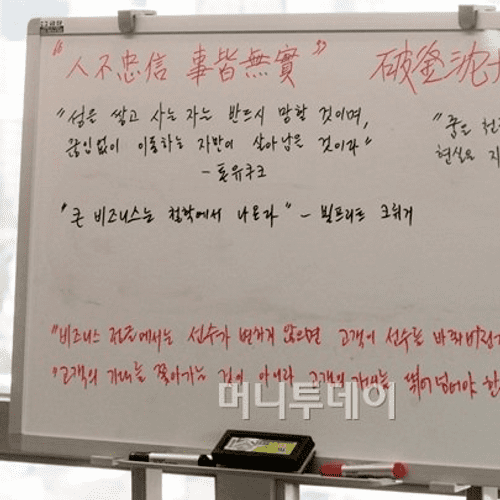 “人不忠信 事皆無實” 破釜沈
“성을 쌓고 사는 자는 반드시 망할 것이며,
끊임없이 이동하는 자만이 살아남을 것이라”
- 톤유쿠크
“꿈은
현실은
“큰 비즈니스는 철학에서 나온다” - 빌프리트 크뤼거
“비즈니스 전쟁에서는 선수가 변하지 않으면 고객이 선수를 바꿔버린
“고객의 기대를 쫓아가는 것이 아니라 고객의 기대를 뛰어넘어야 한
머니투데이